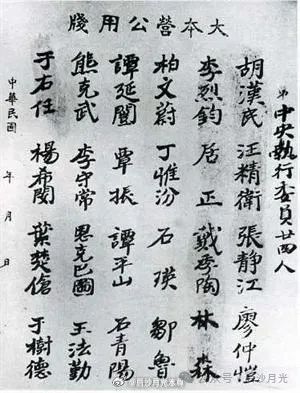 大本營公用牋
第
中央執行委員廿四人
胡漢民 汪精衛 張靜江 廖仲愷
李烈鈞 居正 戴季陶 林森
柏文蔚 丁惟汾 石瑛 鄒魯
譚延闓 覃振 譚平山 石青陽
熊克武 李守常 恩克巴圖 王法勤
于右任 楊希閔 葉楚傖 于樹德
中華民國 年 月 日
@后沙月光本尊
后沙月光